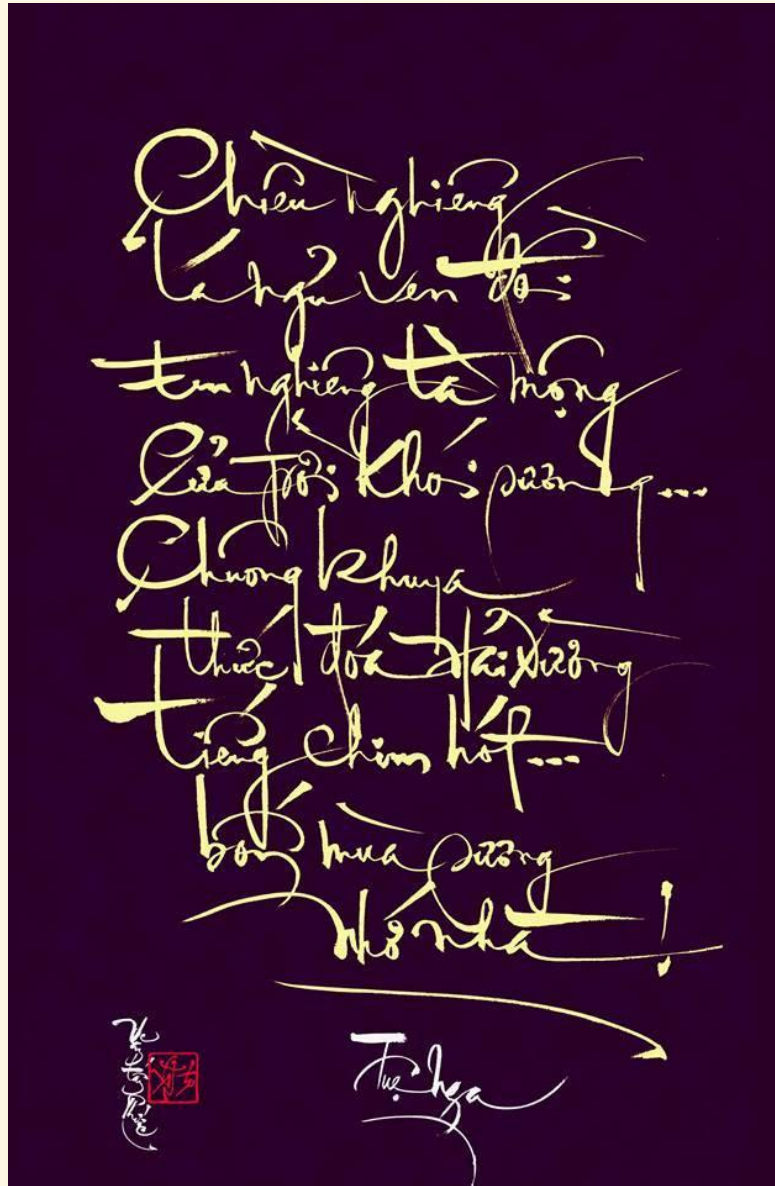 Chiều nghiêng
Lá ngủ ven đồi
tim nghiêng tà mộng
Cửa trời khói sương...
Chuông khuya
thức đóa Hải Đường
Tiếng chim hót...
bóng mùa sương
Nhớ nhà!
Tuệ Nga